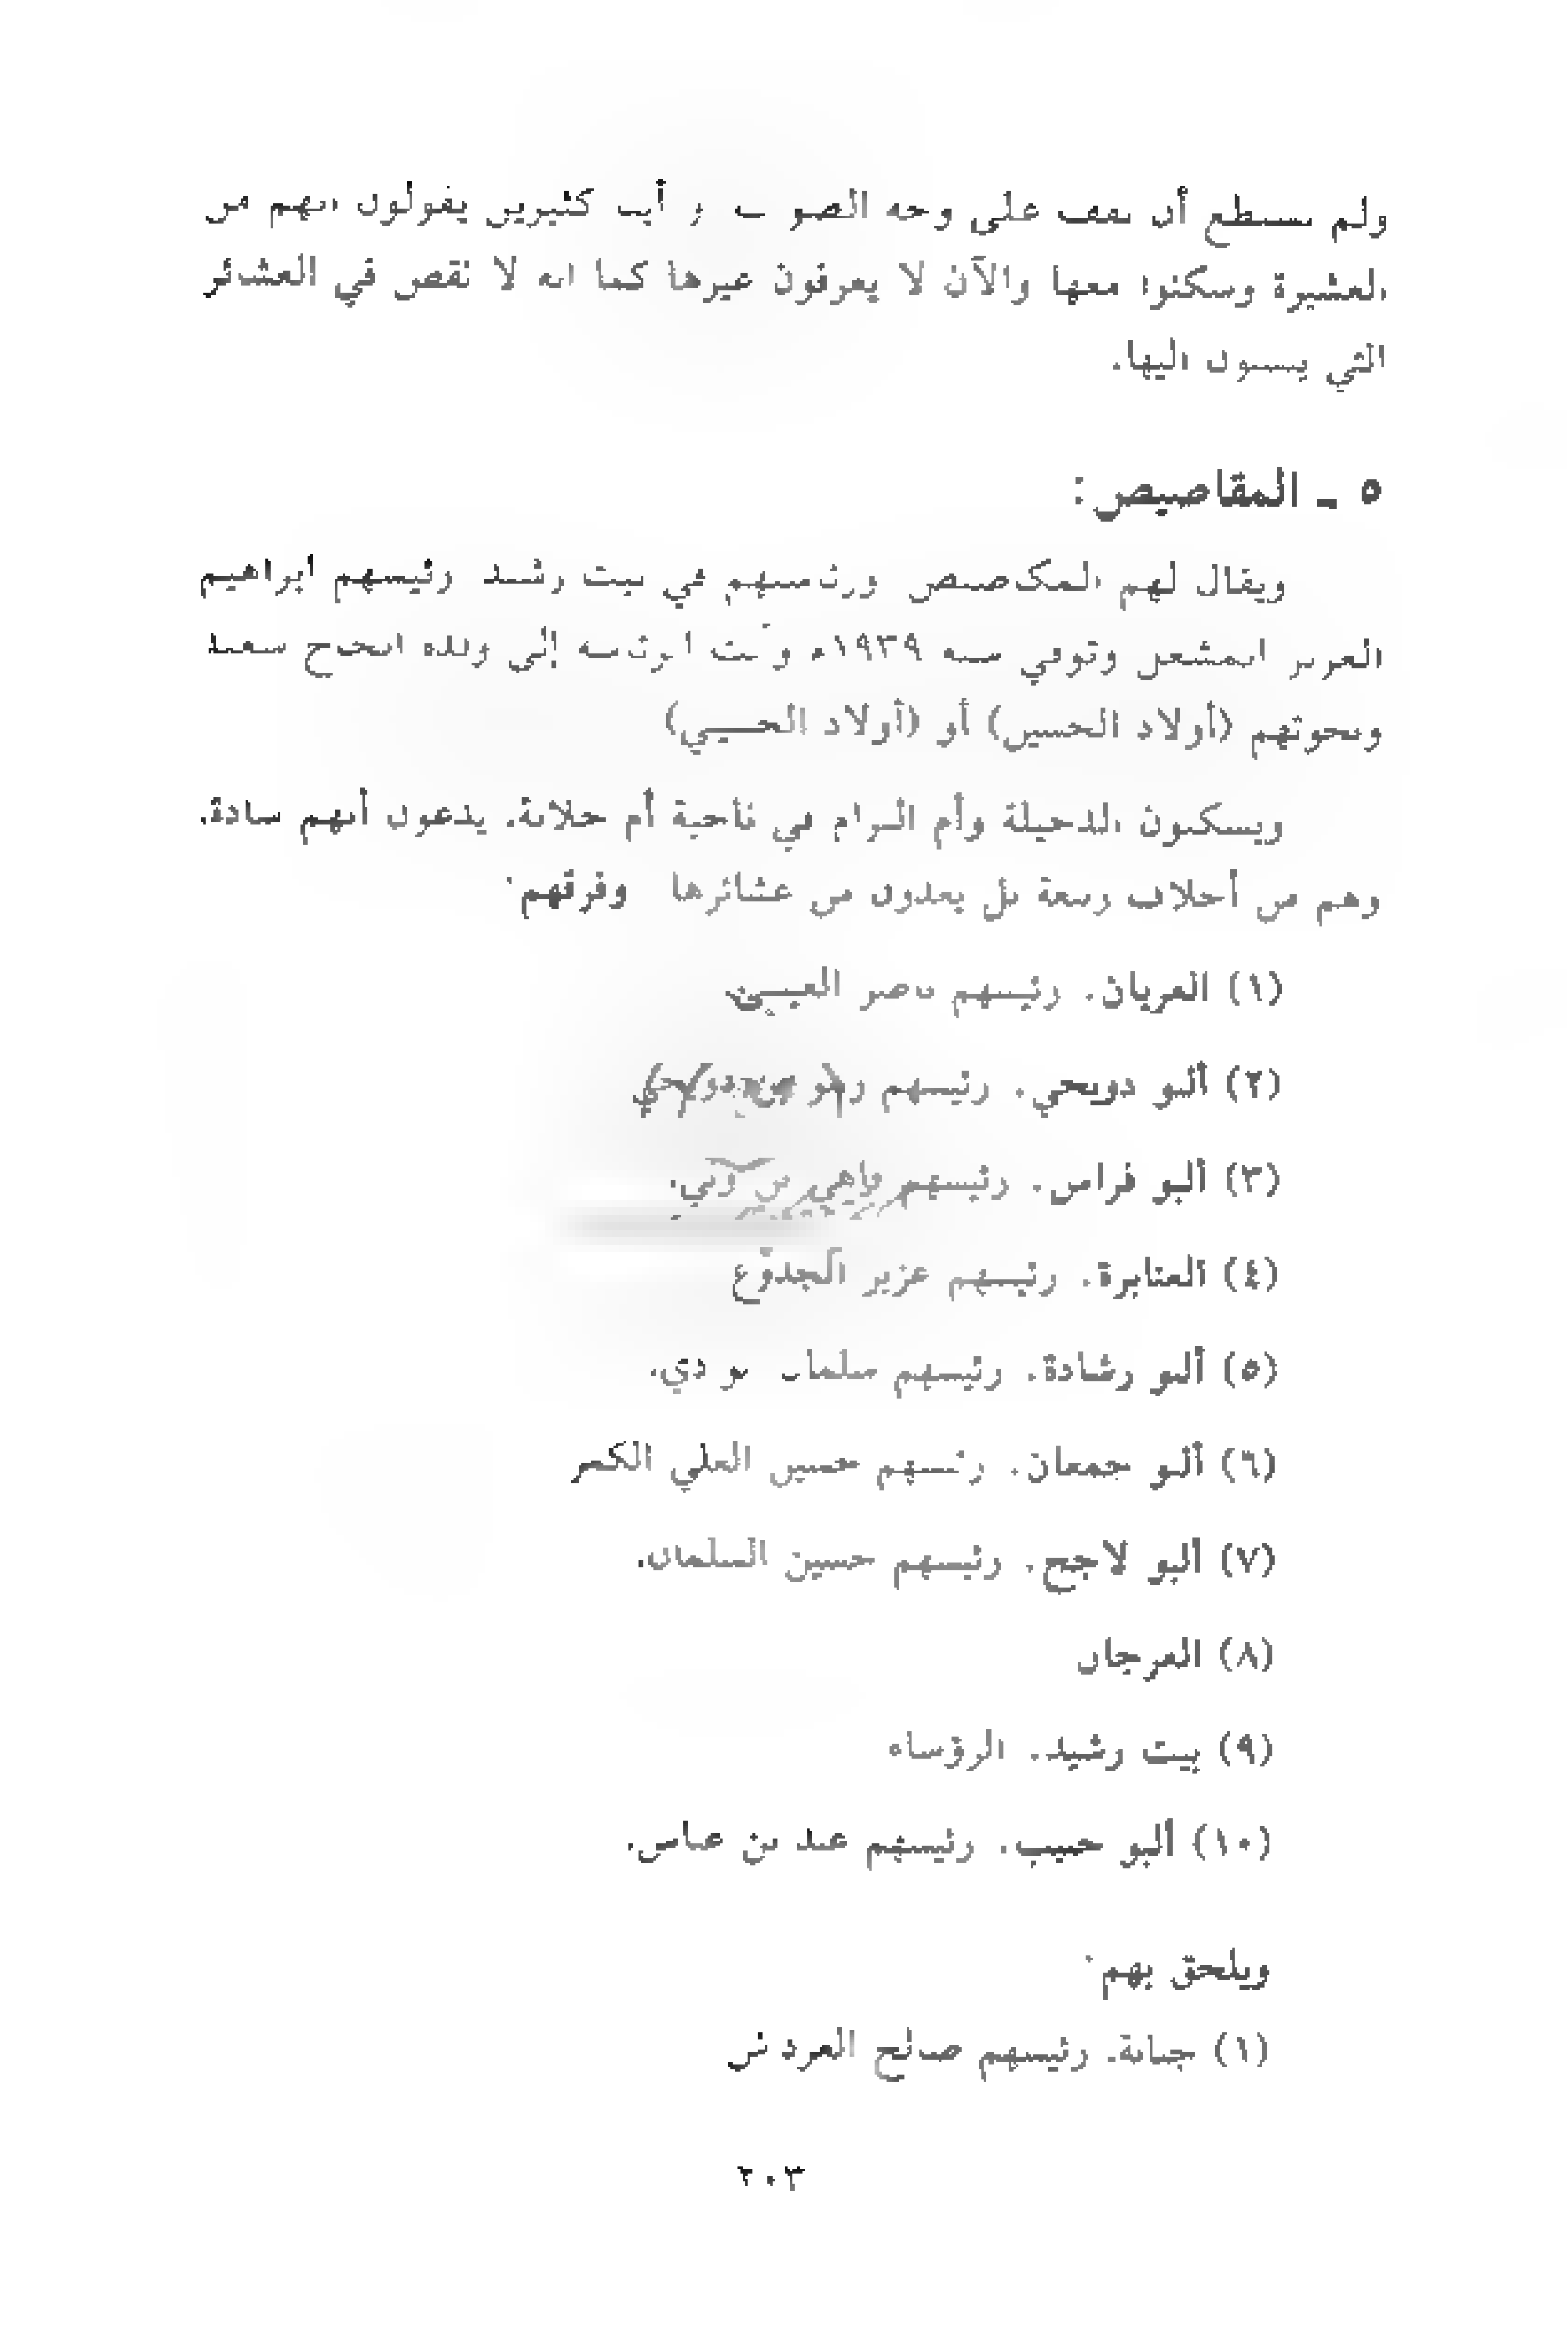 ولم نستطع أن نقف على وجه الصواب كثيرين يقولون انهم من
العشيرة وسكنوا معها والآن لا يعرفون غيرها كما انه لا نقص في العشائر
التي ينسبون اليها.
٥ ـ المقاصيص:
ويقال لهم المكاصيص ورئاستهم في بيت رشيد رئيسهم ابراهيم
العزيز المشعل وتوفي سنة ١٩٣٩م وآلت الرئاسة إلى ولده الحاج سعيد
ونخوتهم (أولاد الحسين) أو (أولاد الحسيبي)
ويسكنون الدخيلة وأم البرام في ناحية أم حلانة. يدعون أنهم سادة.
وهم من أحلاف ربيعة بل يعدون من عشائرها وفرقهم:
(١) العريان. رئيسهم ناصر
(٢) ألبو دويحي. رئيسهم دويحي
(٣) ألبو فراس. رئيسهم
(٤) العنابرة. رئيسهم عزيز الجدوع
(٥) ألبو رشادة. رئيسهم سلمان
(٦) ألبو جمعان. رئيسهم حسين العلي
(٧) ألبو لاجح. رئيسهم حسين السلمان.
(٨) العرجان
(٩) بيت رشيد. الرؤساء
(١٠) ألبو حبيب. رئيسهم عبد بن عباس.
ويلحق بهم:
(١) جنانة. رئيسهم صالح
٢٠٣